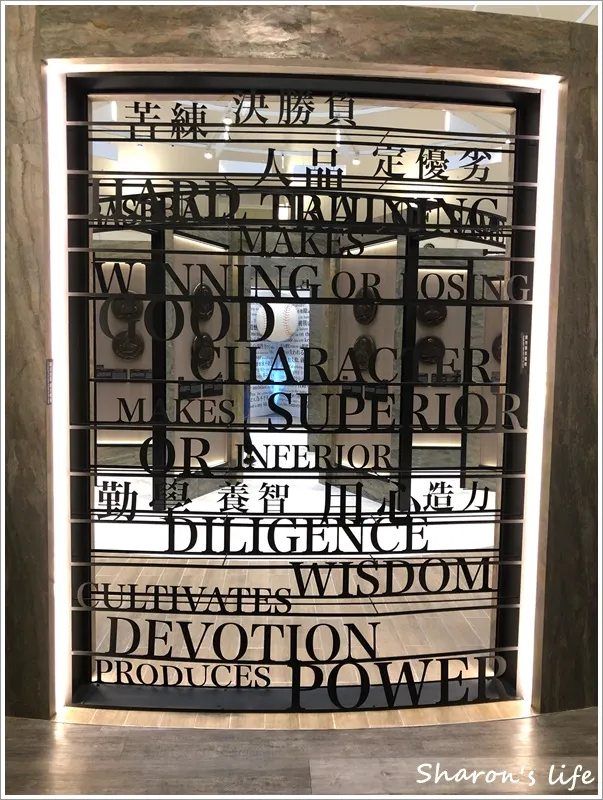 苦練 決勝負
人品 定優劣
HARD TRAINING
MAKES
WINNING OR LOSING
GOOD
CHARACTER
MAKES SUPERIOR
OR INFERIOR
勤學 養智 用心 造力
DILIGENCE
WISDOM
CULTIVATES
DEVOTION
PRODUCES POWER
Sharon's life